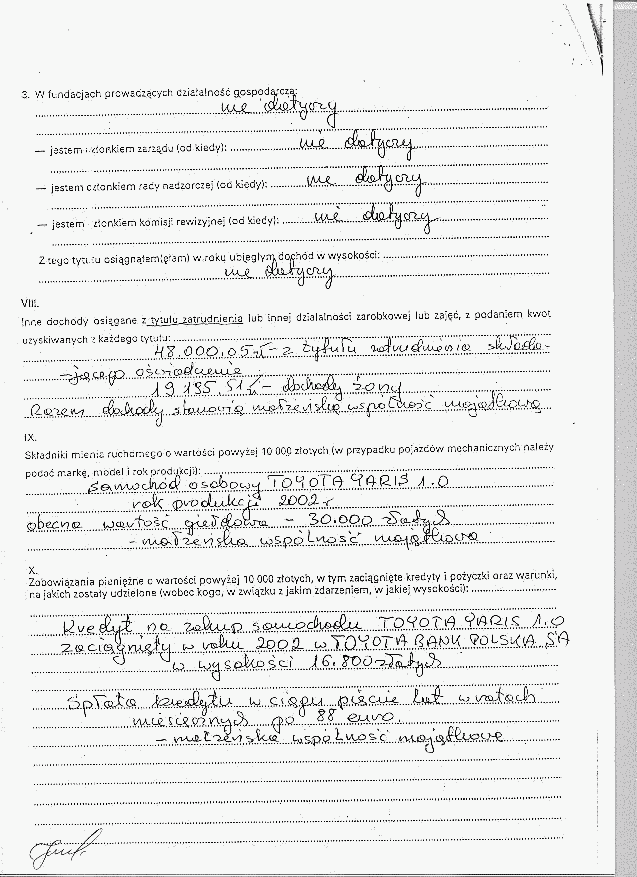 3. W fundacjach prowadzących działalność gospodarczą:
nie dotyczy
— jestem członkiem zarządu (od kiedy): nie dotyczy
— jestem członkiem rady nadzorczej (od kiedy): nie dotyczy
— jestem członkiem komisji rewizyjnej (od kiedy): nie dotyczy
Z tego tytułu osiągnąłem(ęłam) w roku ubiegłym dochód w wysokości:
nie dotyczy
VIII.
Inne dochody osiągane z tytułu zatrudnienia lub innej działalności zarobkowej lub zajęć, z podaniem kwot
uzyskiwanych z każdego tytułu:
48.000,05 zł - z tytułu zatrudnienia składa-
jącego oświadczenie
19 185,51 zł - dochody żony
Razem dochody stanowią małżeńską wspólność majątkową
IX.
Składniki mienia ruchomego o wartości powyżej 10 000 złotych (w przypadku pojazdów mechanicznych należy
podać markę, model i rok produkcji):
samochód osobowy TOYOTA YARIS 1.0
rok produkcji 2002 r
obecna wartość giełdowa - 30.000 złotych
- małżeńska wspólność majątkowa
X.
Zobowiązania pieniężne o wartości powyżej 10 000 złotych, w tym zaciągnięte kredyty i pożyczki oraz warunki,
na jakich zostały udzielone (wobec kogo, w związku z jakim zdarzeniem, w jakiej wysokości):
Kredyt na zakup samochodu TOYOTA YARIS 1.0
zaciągnięty w roku 2002 w TOYOTA BANK POLSKA SA
w wysokości 16.800 złotych
Spłata kredytu w ciągu pięciu lat w ratach
miesięcznych po 88 euro.
- małżeńska wspólność majątkowa